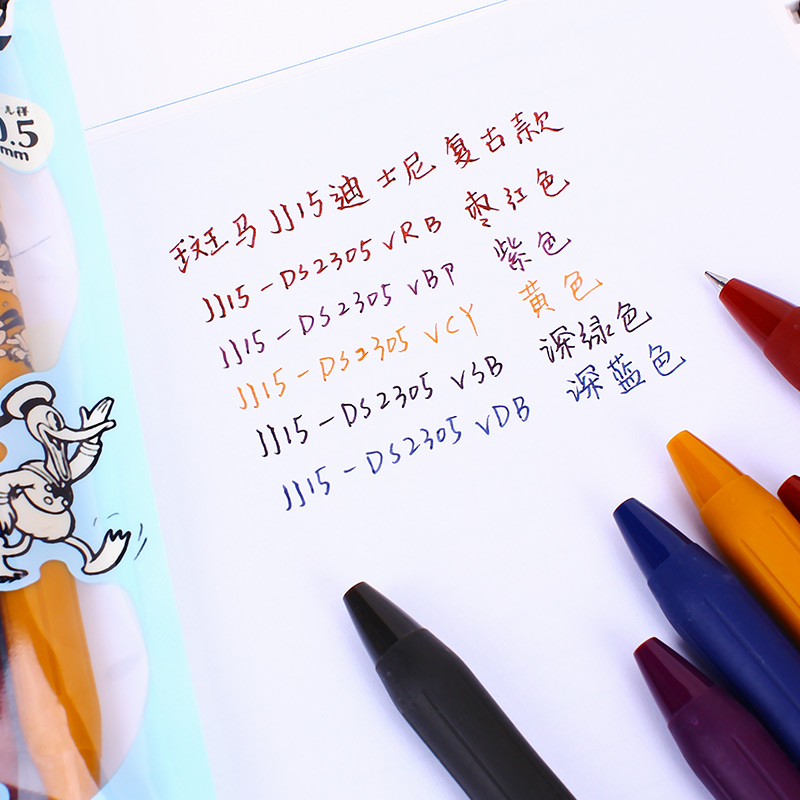 斑马JJ15迪士尼复古款
JJ15-DS2305VRB 枣红色
JJ15-DS2305VBP 紫色
JJ15-DS2305VCY 黄色
JJ15-DS2305VSB 深绿色
JJ15-DS2305VDB 深蓝色
0.5
mm